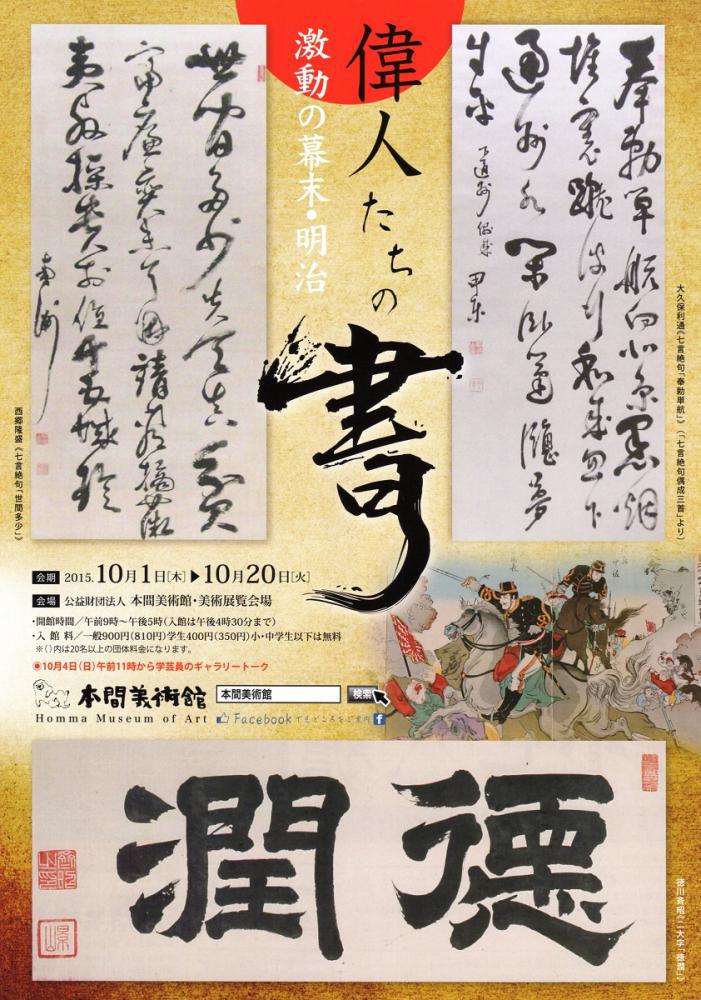 偉人たちの書
激動の幕末・明治
奉勅單航向北京黒烟
堆裏蹴波行和成忽下
通州水閑臥篷窓夢
自平 下通州偶成 甲東
大久保利通《七言絶句「奉勅単航」》(「七言絶句偶成三首」より)
南洲
西郷隆盛《七言絶句「世間多少」》
会期 2015.10月1日[木]▶10月20日[火]
会場 公益財団法人 本間美術館・美術展覧会場
・開館時間／午前9時～午後5時(入館は午後4時30分まで)
・入 館 料／一般900円(810円)学生400円(350円)小・中学生以下は無料
※( )内は20名以上の団体料金になります。
◉10月4日(日)午前11時から学芸員のギャラリートーク
本間美術館 本間美術館 検索
Homma Museum of Art Facebookでもどころをご案内 f
德潤
徳川斉昭《二大字「徳潤」》